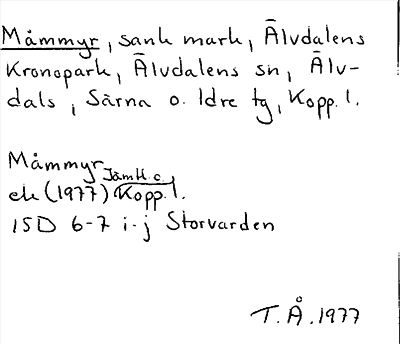 Måmmyr, sank mark, Älvdalens
Kronopark, Älvdalens sn, Älv-
dals, Särna o. Idre tg, Kopp. l.
Måmmyr
Jämtl. o.
ek (1977) Kopp. l.
15D 6-7 i-j Storvarden
T. Å. 1977